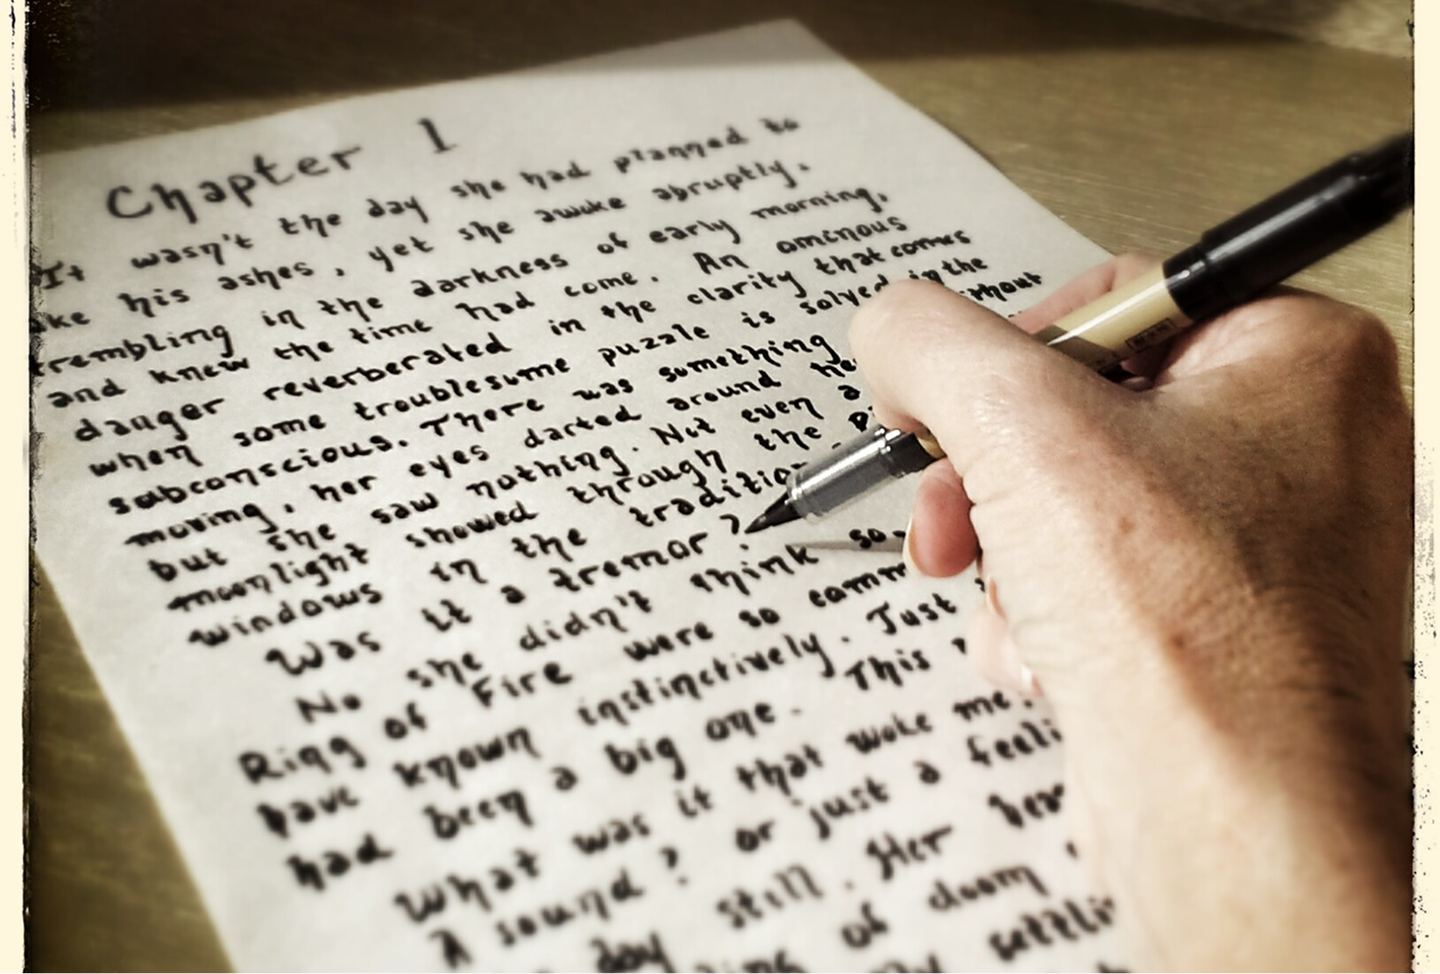 Chapter 1
It wasn't the day she had planned to
his ashes, yet she awoke abruptly.
trembling in the darkness of early morning,
and knew the time had come. An ominous
danger reverberated in the clarity that comes
when some troublesome puzzle is solved in the
subconscious. There was something without
moving, her eyes darted around
but she saw nothing. Not even a
moonlight showed through the
windows in the
Was it a tremor?
No she didn't think so.
Ring of Fire were so
have known instinctively. Just
had been a big one. This
What was it that woke me.
A sound? or just a
day still. Her
of doom